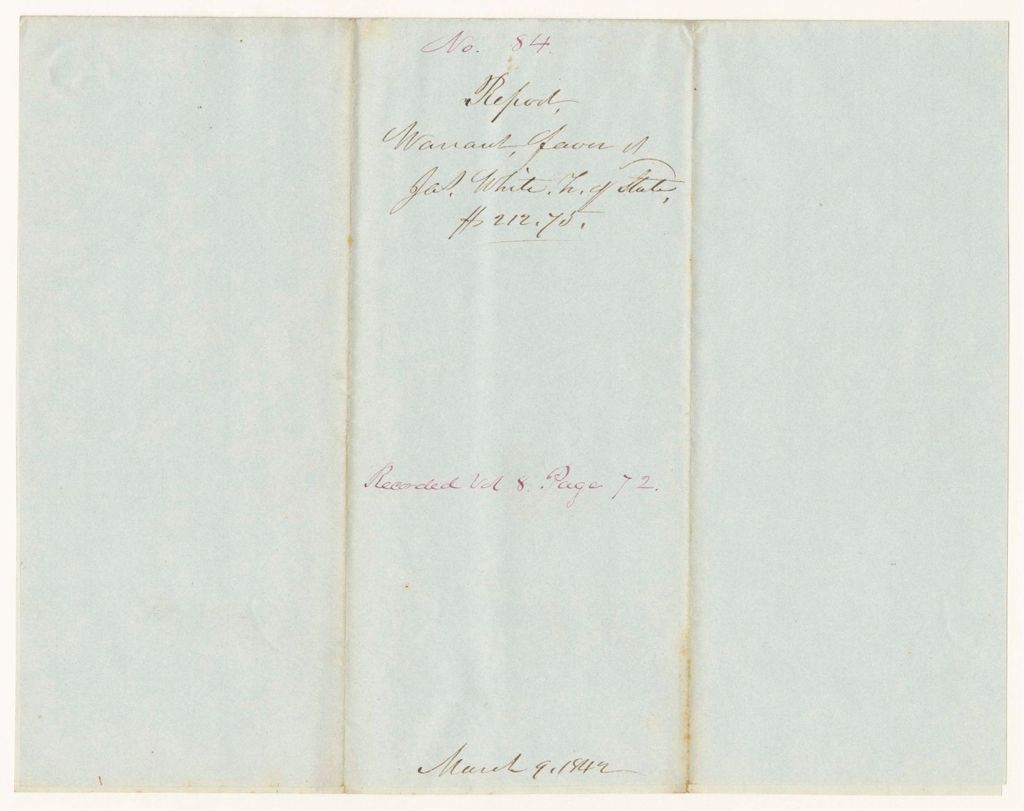 No. 84.
Report,
Warrant, favor of
Jas. White. Tr. of State,
$212.75.
Recorded Vol 8. Page 72.
March 9. 1842